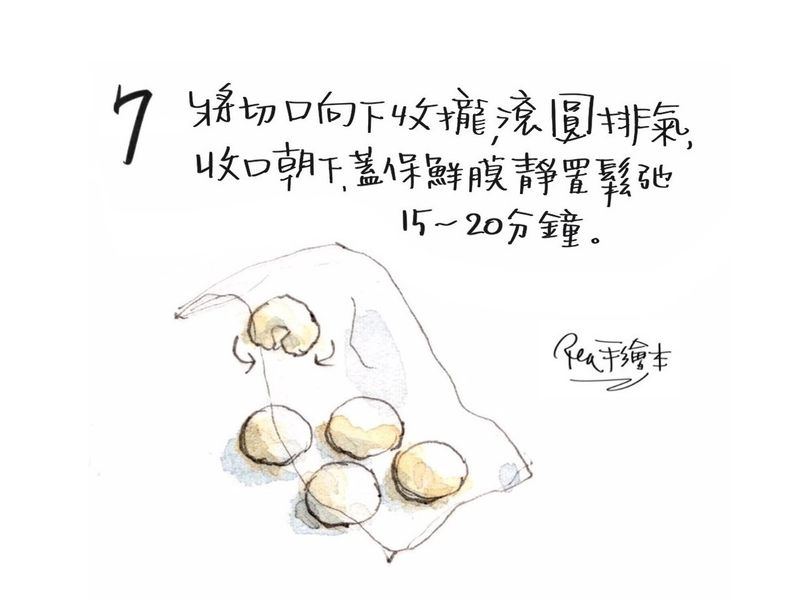 7
將切口向下收攏,滾圓排氣,
收口朝下,蓋保鮮膜靜置鬆弛
15~20分鐘。
Rea手繪本